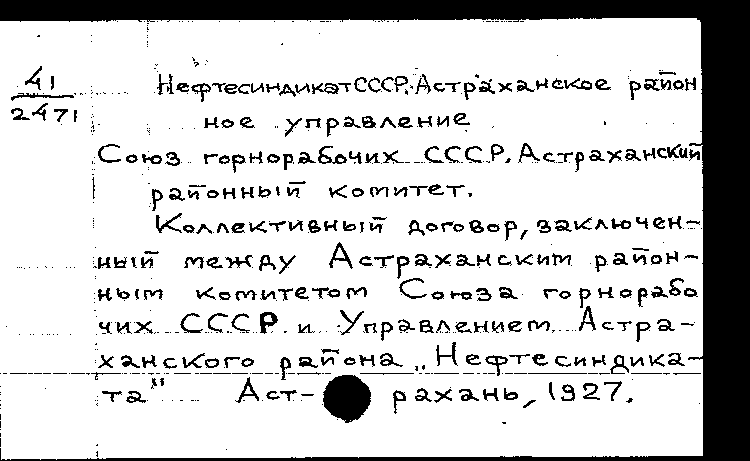 41
2471
Нефтесиндикат СССР. Астраханское район
ное управление
Союз горнорабочих СССР. Астраханский
районный комитет.
Коллективный договор, заключен-
ный между Астраханским район-
ным комитетом Союза горнорабо
чих СССР и Управлением Астра-
ханского района „Нефтесиндика-
та" Аст- рахань, 1927.